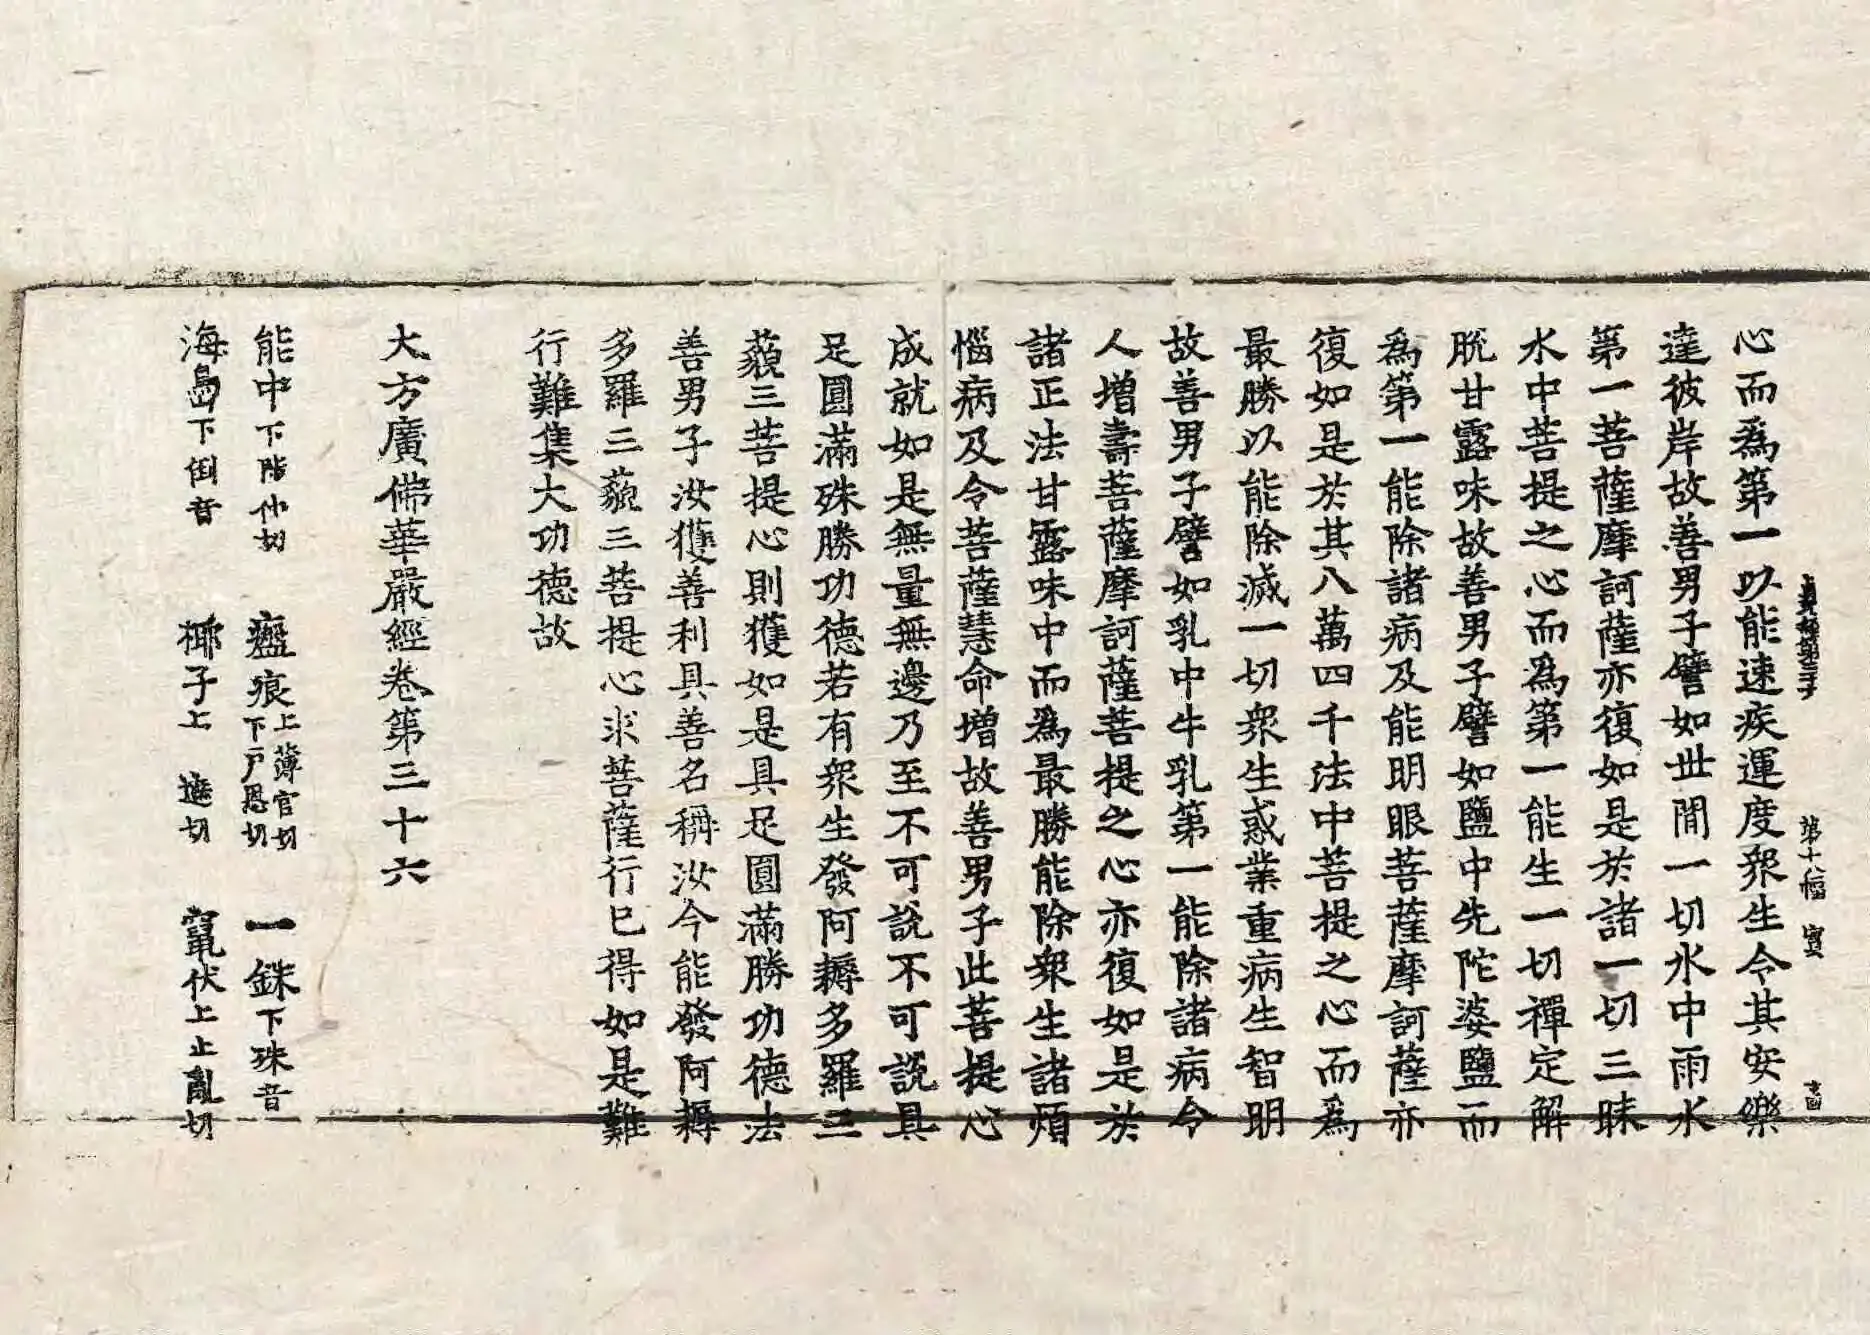 心而爲第一以能速疾運度衆生令其安樂
達彼岸故善男子譬如世間一切水中雨水
第一菩薩摩訶薩亦復如是於諸一切三昧
水中菩提之心而爲第一能生一切禪定解
脫甘露味故善男子譬如鹽中先陀婆鹽而
爲第一能除諸病及能明眼菩薩摩訶薩亦
復如是於其八萬四千法中菩提之心而爲
最勝以能除滅一切衆生惑業重病生智明
故善男子譬如乳中牛乳第一能除諸病令
人增壽菩薩摩訶薩菩提之心亦復如是於
諸正法甘露味中而爲最勝能除衆生諸煩
惱病及令菩薩慧命增故善男子此菩提心
成就如是無量無邊乃至不可說不可說具
足圓滿殊勝功德若有衆生發阿耨多羅三
藐三菩提心則獲如是具足圓滿勝功德法
善男子汝獲善利具善名稱汝今能發阿耨
多羅三藐三菩提心求菩薩行已得如是難
行難集大功德故
大方廣佛華嚴經卷第三十六
能中下階仲切 癍痕上薄官切下戸恩切 一銖下殊音
海島下倒音 椰子上 遮切 竄伏上七亂切
第十八幅 寶